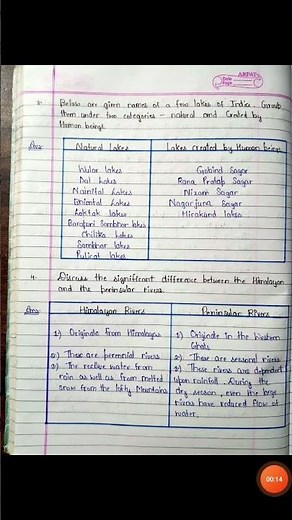 ARPAT
Date
Page
3. Below are given names of a few lakes of India. Group
them under two categories - natural and Created by
Human beings.
Ans: Natural Lakes
Wular lakes
Dal Lakes
Nainital Lakes
Bhimtal Lakes
Loktak lakes
Barapani Sambhar lakes
Chilika Lakes
Sambhar lakes
Pulicat lakes
Lakes created by Human being
Gobind Sagar
Rana Pratap Sagar
Nizam Sagar
Nagarjuna Sagar
Hirakund lakes
4. Discuss the significant difference between the Himalayan
and the peninsular rivers.
Ans: Himalayan Rivers
1) Originate from Himalayas
2) These are perennial rivers
3) The recieve water from
rain as well as from melted
snow from the lofty Mountains
Peninsular Rivers
1) Originate in the Western
Ghats
2) These are seasonal rivers
3) These rivers are dependent
upon rainfall. During the
dry season, even the large
rivers have reduced flow of
water.
00:14